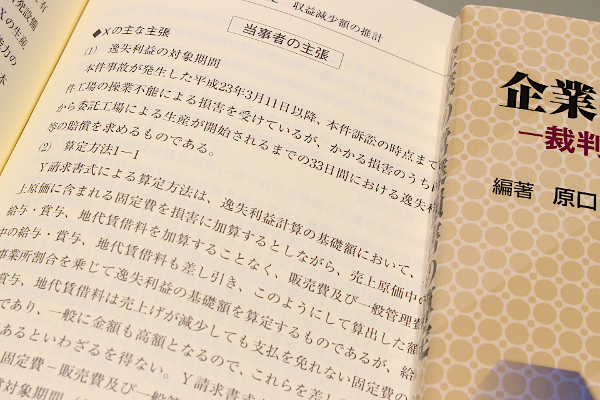 収益減少額の推計
当事者の主張
◆Xの主な主張
(1) 逸失利益の対象期間
本件事故が発生した平成23年3月11日以降、本件訴訟の時点まで
件工場の操業不能による損害を受けているが、かかる損害のうち
から委託工場による生産が開始されるまでの33日間における逸失利
等の賠償を求めるものである。
(2) 算定方法1−1
Y請求書式による算定方法は、逸失利益計算の基礎額において、
上原価に含まれる固定費を損害に加算するとしながら、売上原価中の
給与・賞与、地代賃借料を加算することなく、販売費及び一般管理費
中の給与・賞与、地代賃借料も差し引き、このようにして算出した額
事業所割合を乗じて逸失利益の基礎額を算定するものであるが、給
賞与、地代賃借料は売上げが減少しても支払を免れない固定費の
であり、一般に金額も高額となるので、これらを差し
あるといわざるを得ない。Y請求書式
固定費−販売費及び一般
対象期間
有
発設備
の生産
能力の
本
企業
―裁判
編著 原口